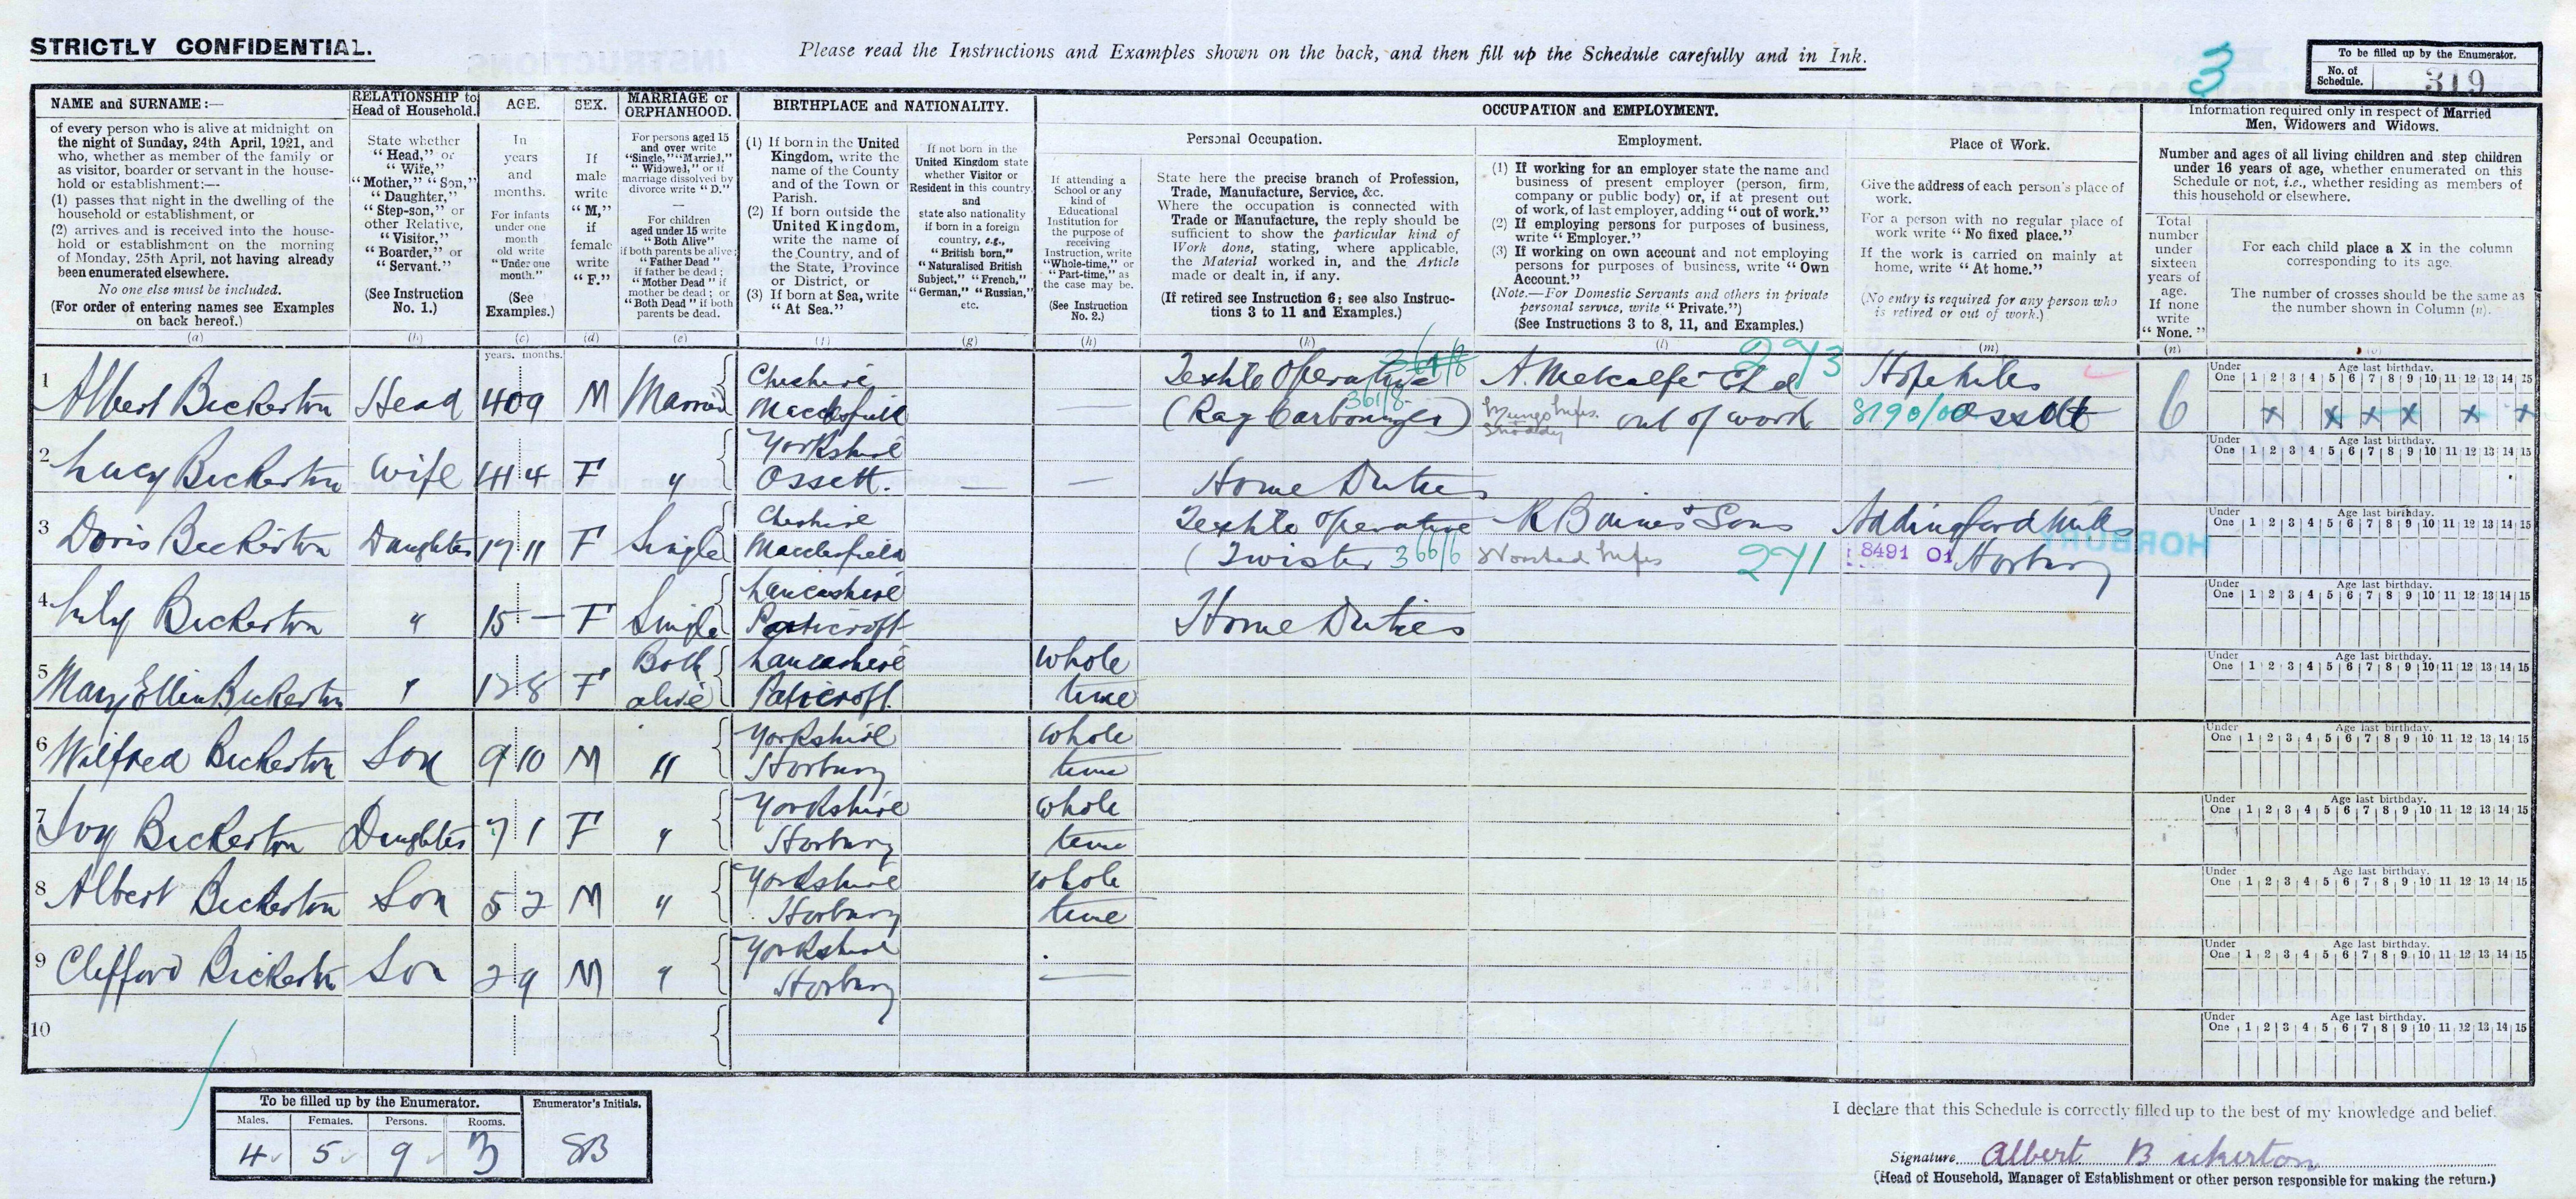 STRICTLY CONFIDENTIAL.
Please read the Instructions and Examples shown on the back, and then fill up the Schedule carefully and in Ink.
3
To be filled up by the Enumerator.
No. of Schedule. 319
NAME and SURNAME:—
of every person who is alive at midnight on
the night of Sunday, 24th April, 1921, and
who, whether as member of the family or
as visitor, boarder or servant in the house-
hold or establishment:—
(1) passes that night in the dwelling of the
household or establishment, or
(2) arrives and is received into the house-
hold or establishment on the morning
of Monday, 25th April, not having already
been enumerated elsewhere.
No one else must be included.
(For order of entering names see Examples
on back hereof.)
(a)
RELATIONSHIP to
Head of Household.
State whether
"Head," or
"Wife,"
"Mother," "Son,"
"Daughter,"
"Step-son," or
other Relative,
"Visitor,"
"Boarder," or
"Servant."
(See Instruction
No. 1.)
(b)
AGE.
In
years
and
months.
For infants
under one
month
old write
"Under one
month."
(See
Examples.)
(c)
years. months.
SEX.
If
male
write
"M,"
if
female
write
"F."
(d)
MARRIAGE or
ORPHANHOOD.
For persons aged 15
and over write
"Single," "Married,"
"Widowed," or if
marriage dissolved by
divorce write "D."
For children
aged under 15 write
"Both Alive"
if both parents be alive;
"Father Dead"
if father be dead;
"Mother Dead" if
mother be dead; or
"Both Dead" if both
parents be dead.
(e)
BIRTHPLACE and NATIONALITY.
(1) If born in the United
Kingdom, write the
name of the County
and of the Town or
Parish.
(2) If born outside the
United Kingdom,
write the name of
the Country, and of
the State, Province
or District, or
(3) If born at Sea, write
"At Sea."
(f)
If not born in the
United Kingdom state
whether Visitor or
Resident in this country,
and
state also nationality
if born in a foreign
country, e.g.,
"British born,"
"Naturalised British
Subject," "French,"
"German," "Russian,"
etc.
(g)
OCCUPATION and EMPLOYMENT.
If attending a
School or any
kind of
Educational
Institution for
the purpose of
receiving
Instruction, write
"Whole-time," or
"Part-time," as
the case may be.
(See Instruction
No. 2.)
(h)
Personal Occupation.
State here the precise branch of Profession,
Trade, Manufacture, Service, &c.
Where the occupation is connected with
Trade or Manufacture, the reply should be
sufficient to show the particular kind of
Work done, stating, where applicable,
the Material worked in, and the Article
made or dealt in, if any.
(If retired see Instruction 6; see also Instruc-
tions 3 to 11 and Examples.)
(k)
Employment.
(1) If working for an employer state the name and
business of present employer (person, firm,
company or public body) or, if at present out
of work, of last employer, adding "out of work."
(2) If employing persons for purposes of business,
write "Employer."
(3) If working on own account and not employing
persons for purposes of business, write "Own
Account."
(Note.—For Domestic Servants and others in private
personal service, write "Private.")
(See Instructions 3 to 8, 11, and Examples.)
(l)
Place of Work.
Give the address of each person's place of
work.
For a person with no regular place of
work write "No fixed place."
If the work is carried on mainly at
home, write "At home."
(No entry is required for any person who
is retired or out of work.)
(m)
Information required only in respect of Married
Men, Widowers and Widows.
Number and ages of all living children and step children
under 16 years of age, whether enumerated on this
Schedule or not, i.e., whether residing as members of
this household or elsewhere.
Total
number
under
sixteen
years of
age.
If none
write
"None."
(n)
For each child place a X in the column
corresponding to its age.
The number of crosses should be the same as
the number shown in Column (n).
(o)
1 Albert Bickerton Head 40 9 M Married Cheshire Macclesfield — Textile Operative (Rag Carbonizer) 361/8 A. Metcalfe Ltd out of work Mungo Mfrs. Shoddy 273 Hope Mills Ossett 8190/00 6
Under One 1 2 3 4 5 6 7 8 9 10 11 12 13 14 15 Age last birthday.
x x x x x x
2 Lucy Bickerton Wife 41 4 F " Yorkshire Ossett. — — Home Duties
Under One 1 2 3 4 5 6 7 8 9 10 11 12 13 14 15 Age last birthday.
3 Doris Bickerton Daughter 17 11 F Single Cheshire Macclesfield Textile Operative (Twister 366/6 R Baines & Sons Worsted Mfrs 271 Addingford Mills Horbury 8491 01
Under One 1 2 3 4 5 6 7 8 9 10 11 12 13 14 15 Age last birthday.
4 Lily Bickerton " 15 — F Single Lancashire Patricroft Home Duties
Under One 1 2 3 4 5 6 7 8 9 10 11 12 13 14 15 Age last birthday.
5 Mary Ellin Bickerton " 12 8 F Both alive Lancashire Patricroft. Whole time
Under One 1 2 3 4 5 6 7 8 9 10 11 12 13 14 15 Age last birthday.
6 Wilfred Bickerton Son 9 10 M " Yorkshire Horbury Whole time
Under One 1 2 3 4 5 6 7 8 9 10 11 12 13 14 15 Age last birthday.
7 Ivy Bickerton Daughter 7 1 F " Yorkshire Horbury Whole time
Under One 1 2 3 4 5 6 7 8 9 10 11 12 13 14 15 Age last birthday.
8 Albert Bickerton Son 5 2 M " Yorkshire Horbury Whole time
Under One 1 2 3 4 5 6 7 8 9 10 11 12 13 14 15 Age last birthday.
9 Clifford Bickerton Son 2 9 M " Yorkshire Horbury —
Under One 1 2 3 4 5 6 7 8 9 10 11 12 13 14 15 Age last birthday.
10
Under One 1 2 3 4 5 6 7 8 9 10 11 12 13 14 15 Age last birthday.
To be filled up by the Enumerator.
Males. Females. Persons. Rooms.
4 5 9 3
Enumerator's Initials.
SB
I declare that this Schedule is correctly filled up to the best of my knowledge and belief.
Signature Albert Bickerton
(Head of Household, Manager of Establishment or other person responsible for making the return.)